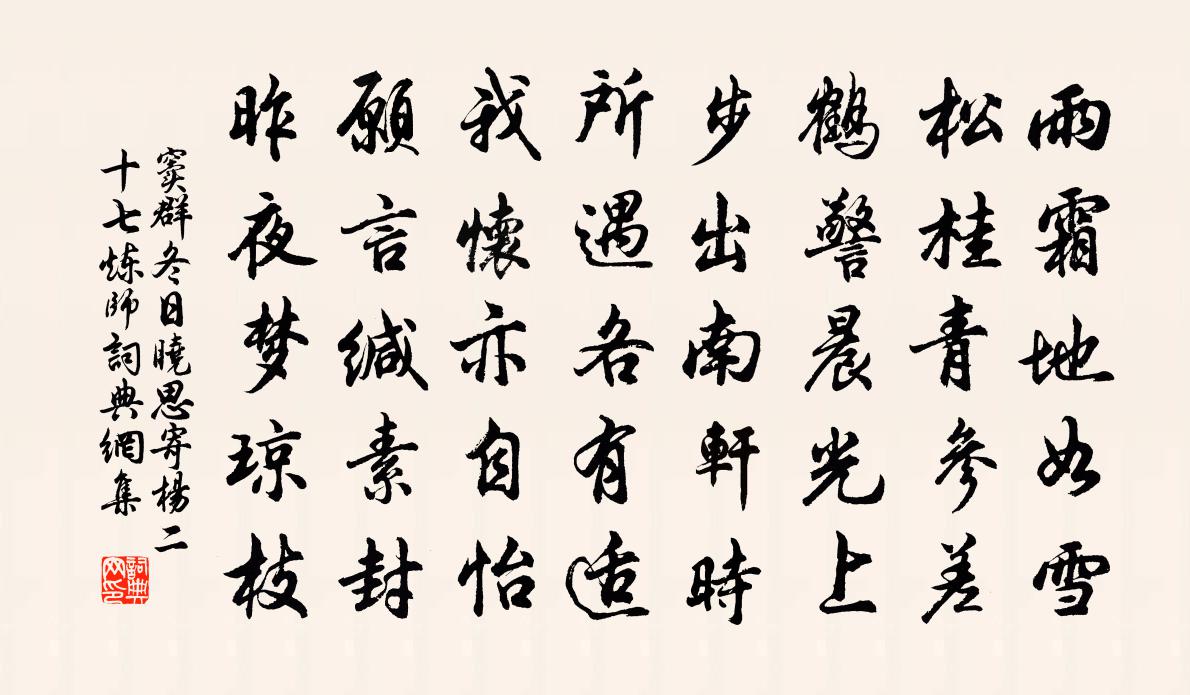 雨霜地如雪
松桂青參差
鶴警晨光上
步出南軒時
所遇各有适
我懷亦自怡
願言缄素封
昨夜梦琼枝
窦群冬日曉思寄楊二
十七炼師詞典網集
詞典网印